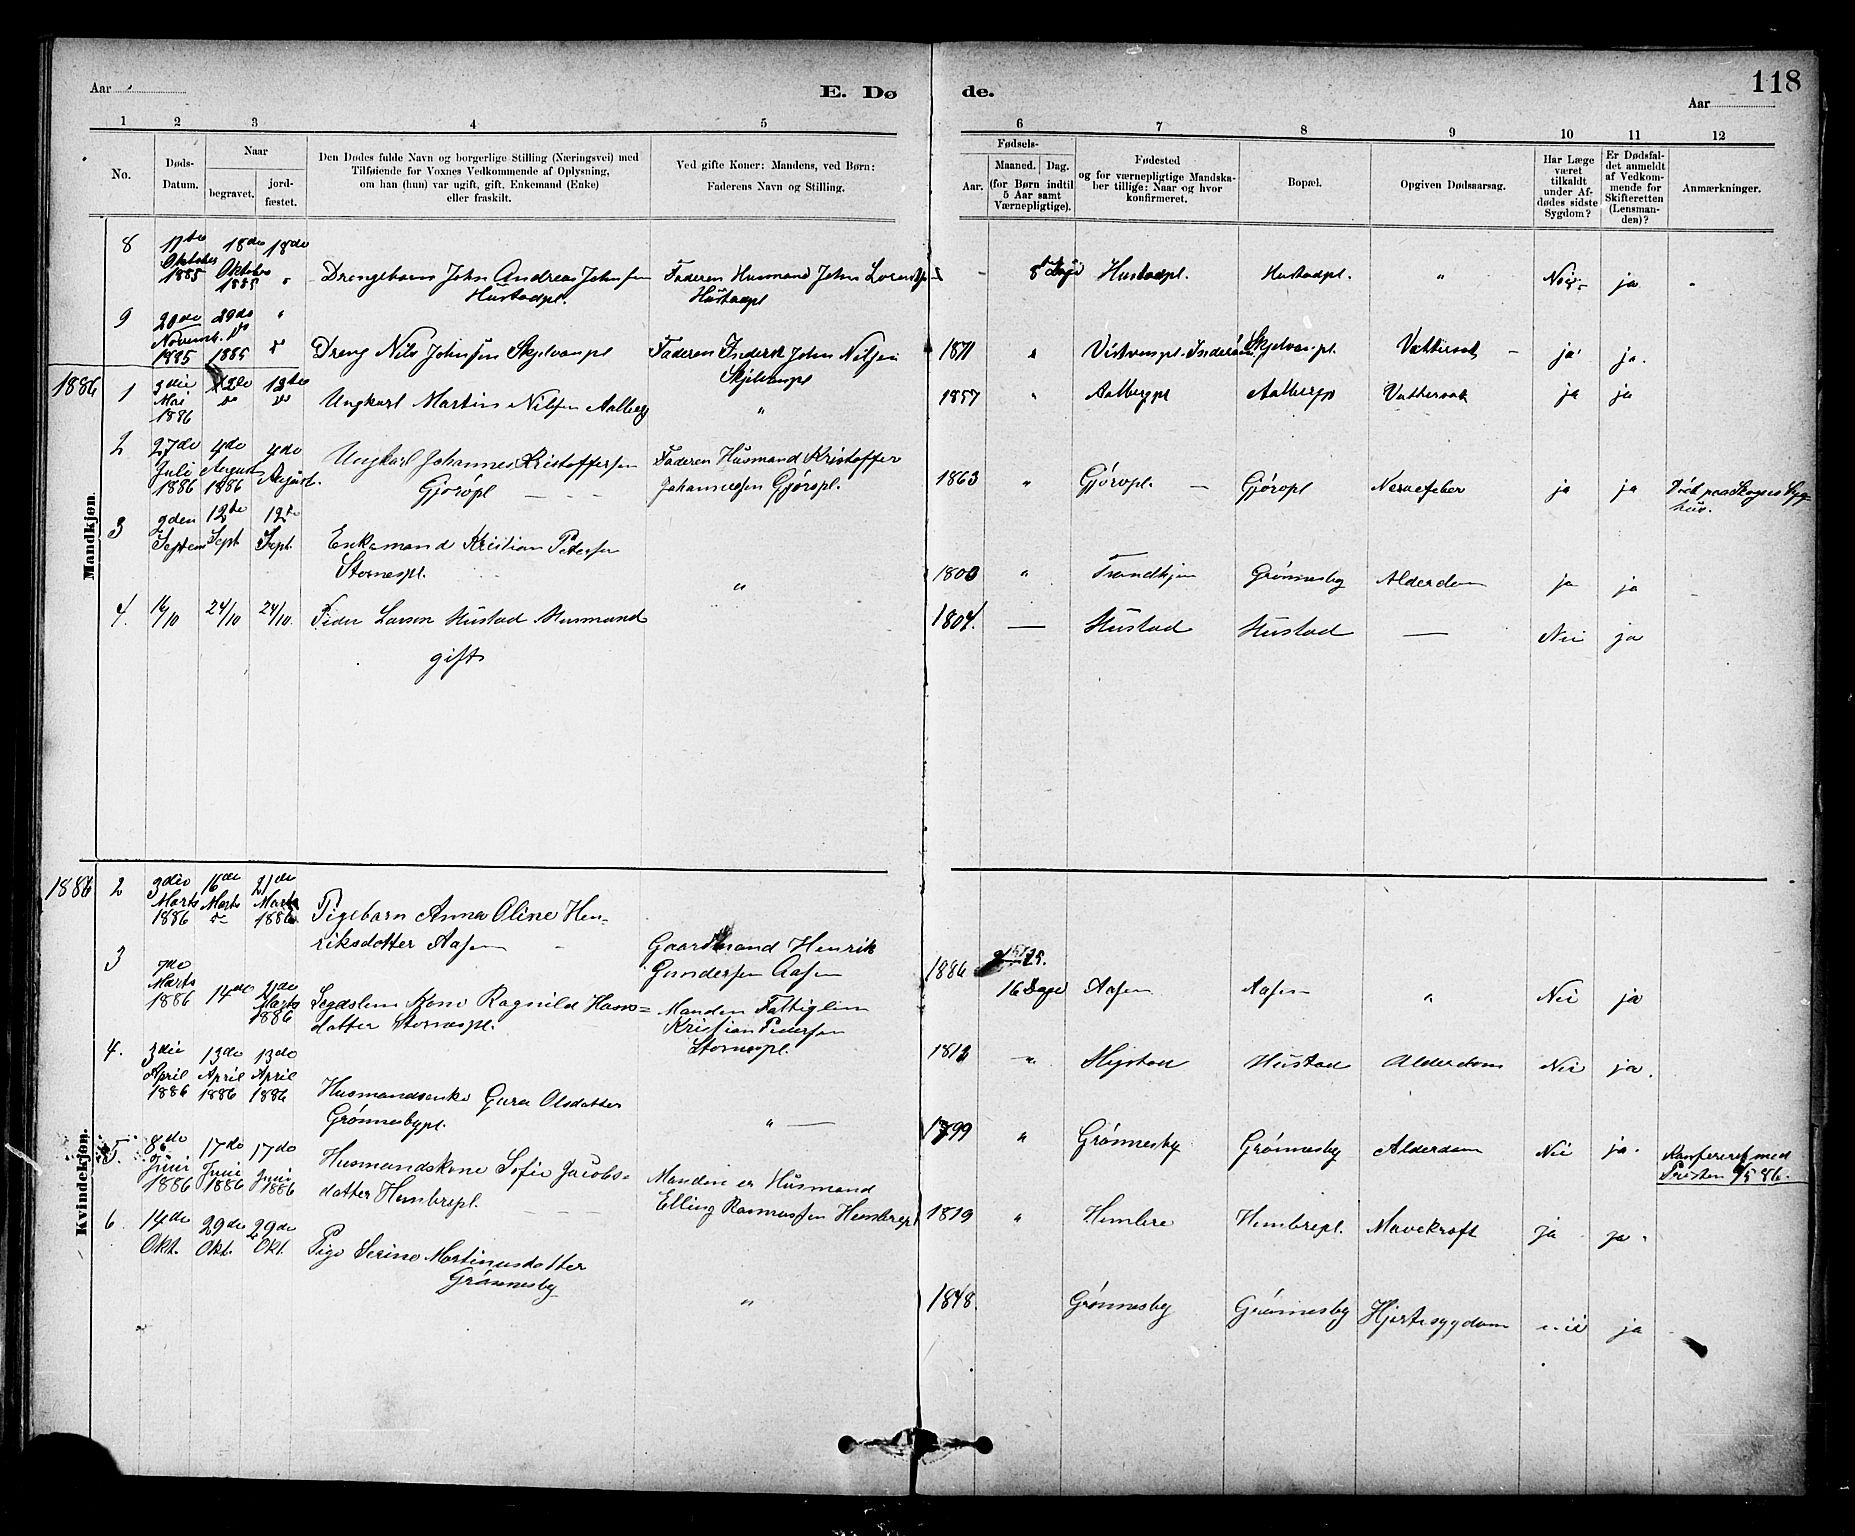 Aar
E. Dø
de.
118
Aar
1 2 3 4 5 6 7 8 9 10 11 12
No.
Døds-Datum.
Naar
begravet.
jordfæstet.
Den Dødes fulde Navn og borgerlige Stilling (Næringsvei) med
Tilføiende for Voxnes Vedkommende af Oplysning,
om han (hun) var ugift, gift, Enkemand (Enke)
eller fraskilt.
Ved gifte Koner: Mandens, ved Børn:
Faderens Navn og Stilling.
Fødsels-
Aar.
Maaned. Dag.
(for Børn indtil
5 Aar samt
Værnepligtige).
Fødested
og for værnepligtige Mandska-
ber tillige: Naar og hvor
konfirmeret.
Bopæl.
Opgiven Dødsaarsag.
Har Læge
været
tilkaldt
under Af-
dødes sidste
Sygdom?
Er Dødsfal-
det anmeldt
af Vedkom-
mende for
Skifteretten
(Lensman-
den)?
Anmærkninger.
Mandkjøn.
8 17de Oktober 1885 18de Oktober 1885 18de "
Drengebarn John Andreas Johnsen
Hustadpl.
Faderen Husmand John Lorents
Hustadpl
- 8 Dage Hustadpl. Hustadpl. " Nei ja "
9 20de Novemb. 1885 29de do 1885 " do
Dreng Nils Johnsen Skjelvanpl
Faderen Inderst John Nilsen
Skjelvanpl
1871 " Vistvanpl. Inderøen Skjelvanpl. Vattersot - ja ja.
1886 1 3die Mai 1886 12te do 12te do
Ungkarl Martin Nilsen Aalberg "
1857 " Aalbergpl Aalbergpl Vattersot ja ja
2 27de Juli 1886 4de August 1886 4de August.
Ungkarl Johannes Kristoffersen
Gjørøpl
Faderen Husmand Kristoffer
Johannessen Gjørøpl.
1863 " Gjørøpl. - Gjørøpl Nervefeber ja ja Død paa Skognes Syg-
hus.
3 2den Septem 12te Sept 12te Sept.
Enkemand Kristian Petersen
Stornespl. "
1800 " Trondhjem Grønnesby Alderdom ja ja
4. 16/10 24/10 24/10.
Peder Larsen Hustad Husmand
gift
1804. — Hustad Hustad — Nei ja
Kvindekjøn.
1886 2 3die Marts 1886 16de Marts do 21de Marts 1886
Pigebarn Anna Oline Hen-
riksdatter Aasen
Gaardmand Henrik
Gundersen Aasen
1886 16 Dage Aasen Aasen " Nei ja
3 7de Marts 1886 14de 21de Marts 1886
Kone Ragnild Hans-
datter Stornespl.
Manden Fattiglem
Kristian Pedersen
Stornespl.
1812 " Hustad Alderdom Nei ja.
4. 3die April 1886 13de April 1886 13de April 1886
Husmandsenke Guru Olsdatter
Grønnesbypl. " —
1799 " Grønnesby Grønnesby Alderdom Nei ja. Konfereret med
Presten 9/5 86.
5. 8de Juni 1886 17de Juni 1886 17de Juni 1886
Husmandskone Sofie Jacobs-
datter Hembrepl.
Manden er Husmand
Elling Rasmussen Hembrepl
1819 " Hembre Hembrepl. Mavekræft ja ja.
6. 14de Okt. 29de Okt. 29de Okt.
Pige Serine Martinusdatter
Grønnesby "
1848. Grønnesby Grønnesby Hjertesygdom nei ja